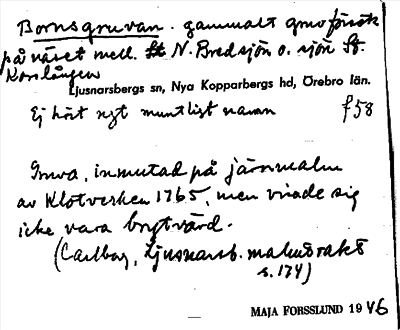 Bornsgruvan. gammalt gruvförsök
på näset mell. St N. Bredsjön o. sjön St.
Korslången
Ljusnarsbergs sn, Nya Kopparbergs hd, Örebro län.
Ej hört ngt muntligt namn f58
Gruva, inmutad på järnmalm
av Klotverken 1765, men visade sig
icke vara brytvärd.
(Carlborg, Ljusnarsb. malmstrakt
s. 174)
MAJA FORSSLUND 1946